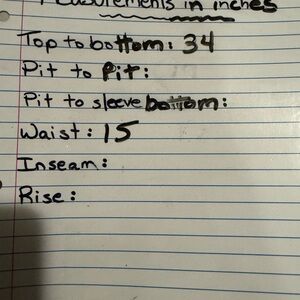 Measurements in inches
Top to bottom: 34
Pit to Pit:
Pit to sleeve bottom:
Waist: 15
Inseam:
Rise: